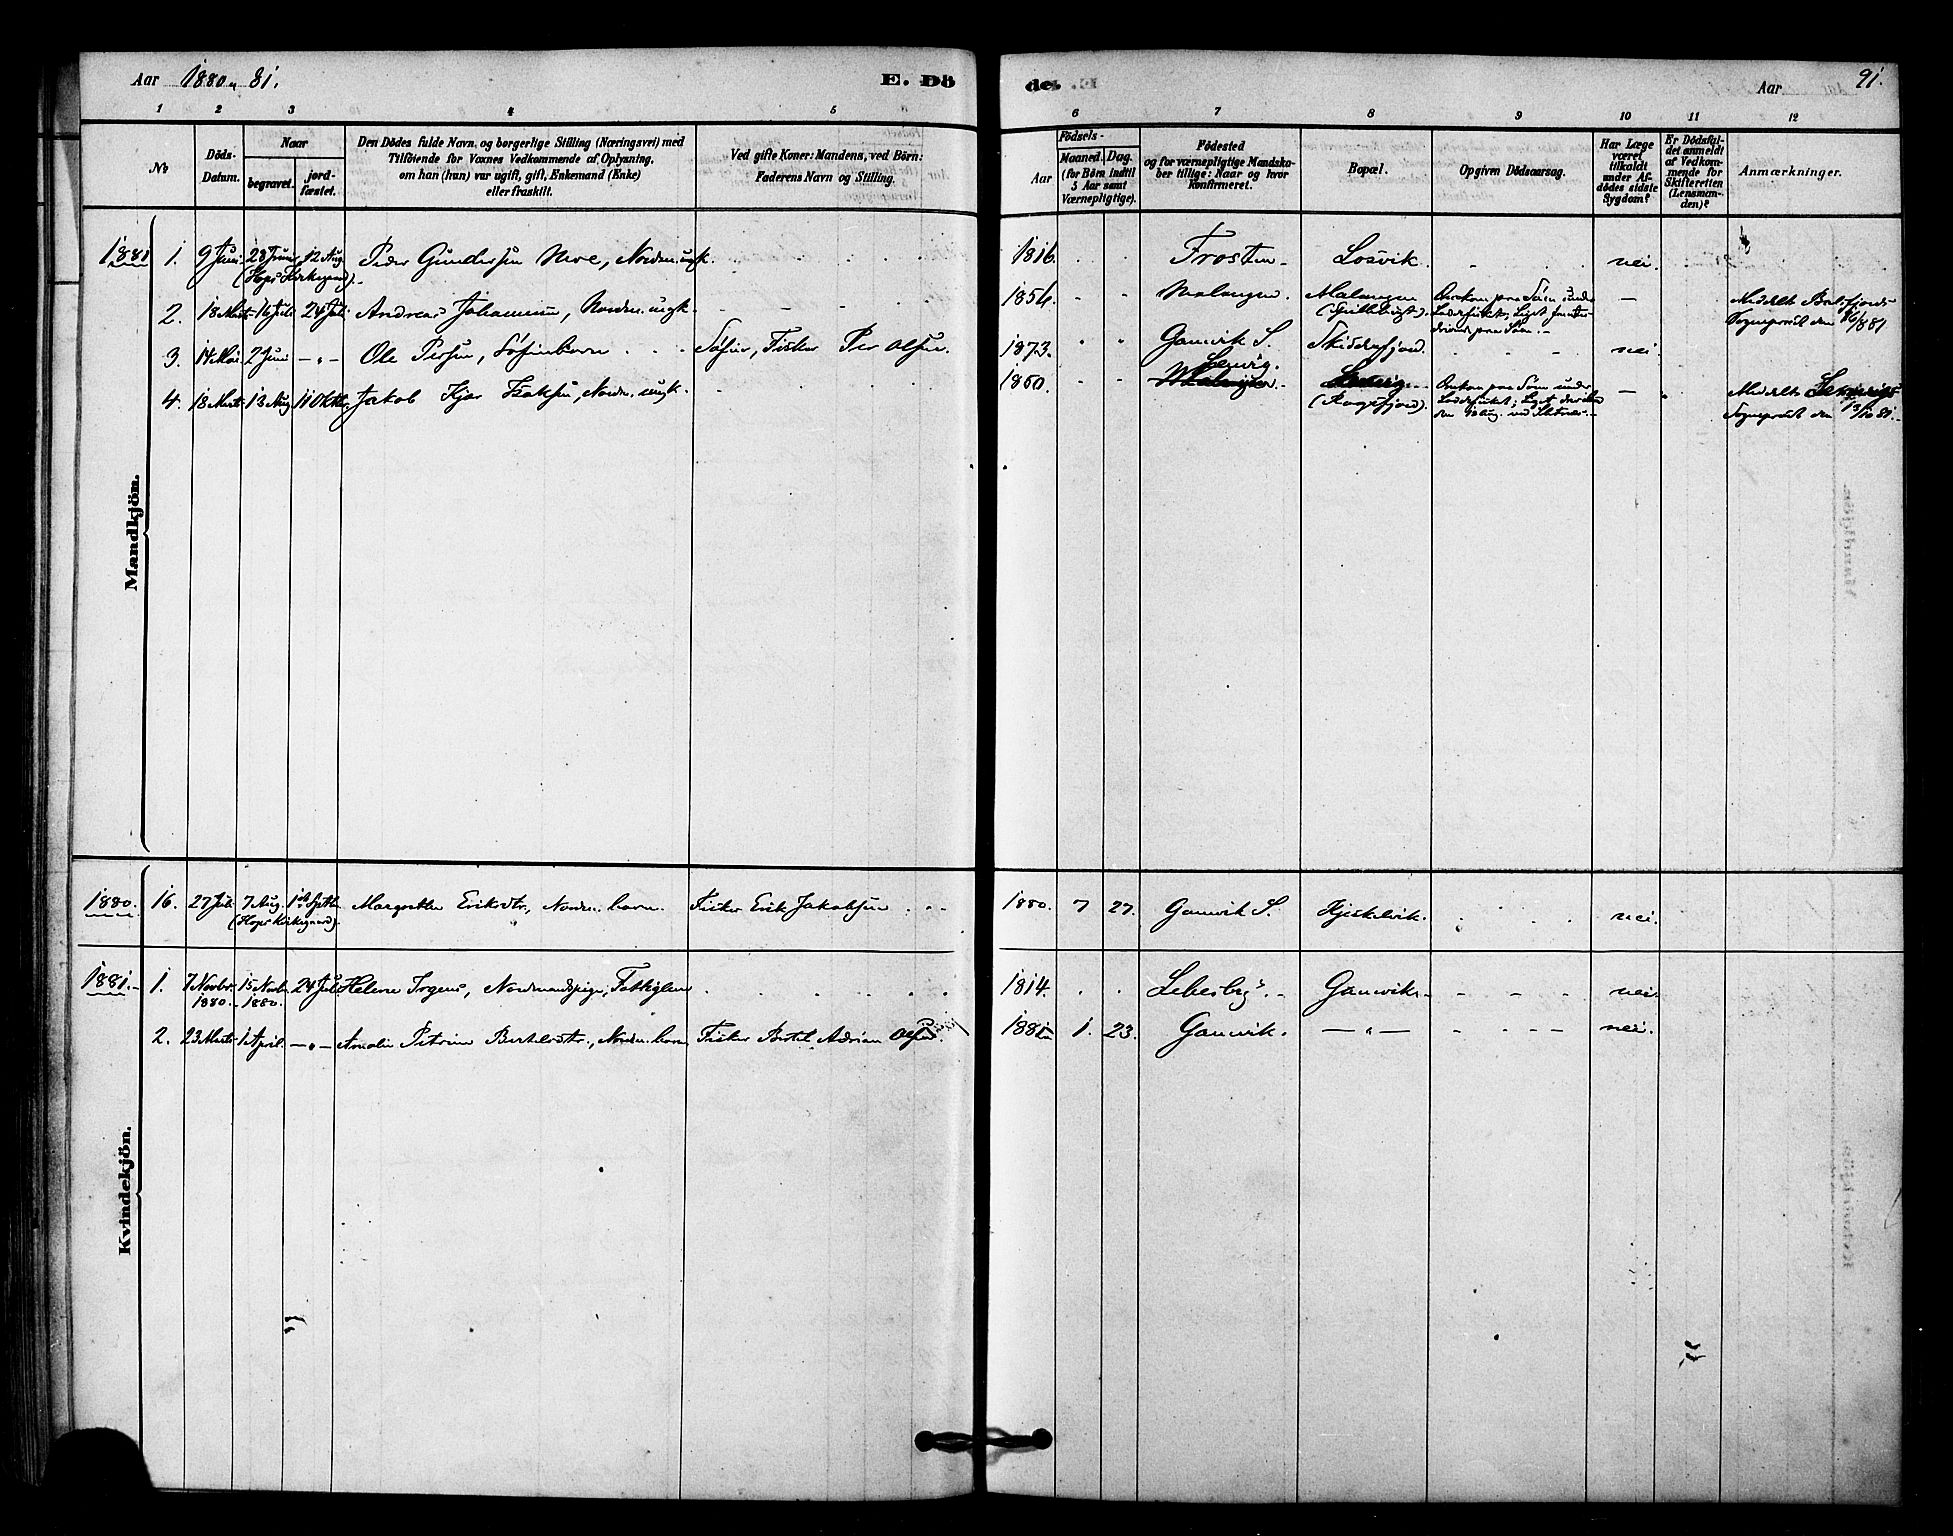 Aar 1880 " 81.
E. Dö
de.
Aar
91.
1 2 3 4 5
6 7 8 9 10 11 12
No
Döds-
Datum.
Naar
begravet.
jord-
fæstet.
Den Dödes fulde Navn, og borgerlige Stilling (Næringsvei) med
Tilföiende for Voxnes Vedkommende af Oplysning,
om han (hun) var ugift, gift, Enkemand (Enke)
eller fraskilt.
Ved gifte Koner: Mandens, ved Börn:
Faderens Navn og Stilling.
Födsels-
Aar
Maaned. Dag.
(for Börn indtil
5 Aar samt
Værnepligtige).
Födested
og for værnepligtige Mandska-
ber tillige: Naar og hvor
konfirmeret.
Bopæl.
Opgiven Dödsaarsag.
Har Læge
været
tilkaldt
under Af-
dödes sidste
Sygdom?
Er Dödsfal-
det anmeldt
af Vedkom-
mende for
Skifteretten
(Lensman-
den)?
Anmærkninger.
Mandkjön.
1881 1. 9 Juni 28 Juni 12 Aug. Peder Gundersen Moe, Nordm. ugk. 1816. Frosten Losvik. nei.
(Hops Kirkegaard).
2. 18 Marts 16 Juli 24 Juli Andreas Johannesen, Nordm. ugk. 1856. Malangen. Malangen Omkom paa Søen under — Meddelt Balsfjords
Loddefisket; Liget
Sogneprest den 16/8 81
3. 14 Mai 2 Juni — " — Ole Persen, Søfinbarn Søfin, Fisker Per Olsen. 1873. Gamvik S. Skiddenfjord. nei.
4. 18 Marts 13 Aug 11 Oktbr. Jakob Kjær Isaksen, Nordm. ugk. 1860. Lenvig. Omkom paa Søen under — Meddelt Lenvigs
Loddefisket; Liget
Sogneprest den 13/10 81.
Kvindekjön.
1880. 16. 27 Juli 7 Aug. 1ste Septbr. Margrethe Eriksdtr., Nordm. barn Fisker Erik Jakobsen 1880. 7 27. Gamvik S. Kjeskelvik. nei.
(Hops Kirkegaard).
1881. 1. 7 Novbr. 15 Novbr. 24 Juli Helene Irgens, Nordmandspige, Fattiglem 1814. Lebesby. Gamvik nei.
1880. 1880.
2. 23 Marts 1 April. — " — Amalie Petrine Bertelsdtr., Nordm. barn Fisker Bertel Adrian Olsen. 1881 1. 23. Gamvik. — " — nei.